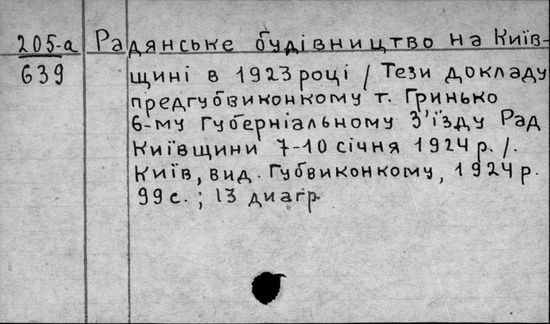 205-а Радянське будівництво на Київ-
639 щині в 1923 році / Тези докладу
предгубвиконкому т. Гринько
6-му Губерніальному З'їзду Рад
Київщини 7-10 січня 1924 р. /.
Київ, вид. Губвиконкому, 1924 р.
99 с. ; 13 диагр.